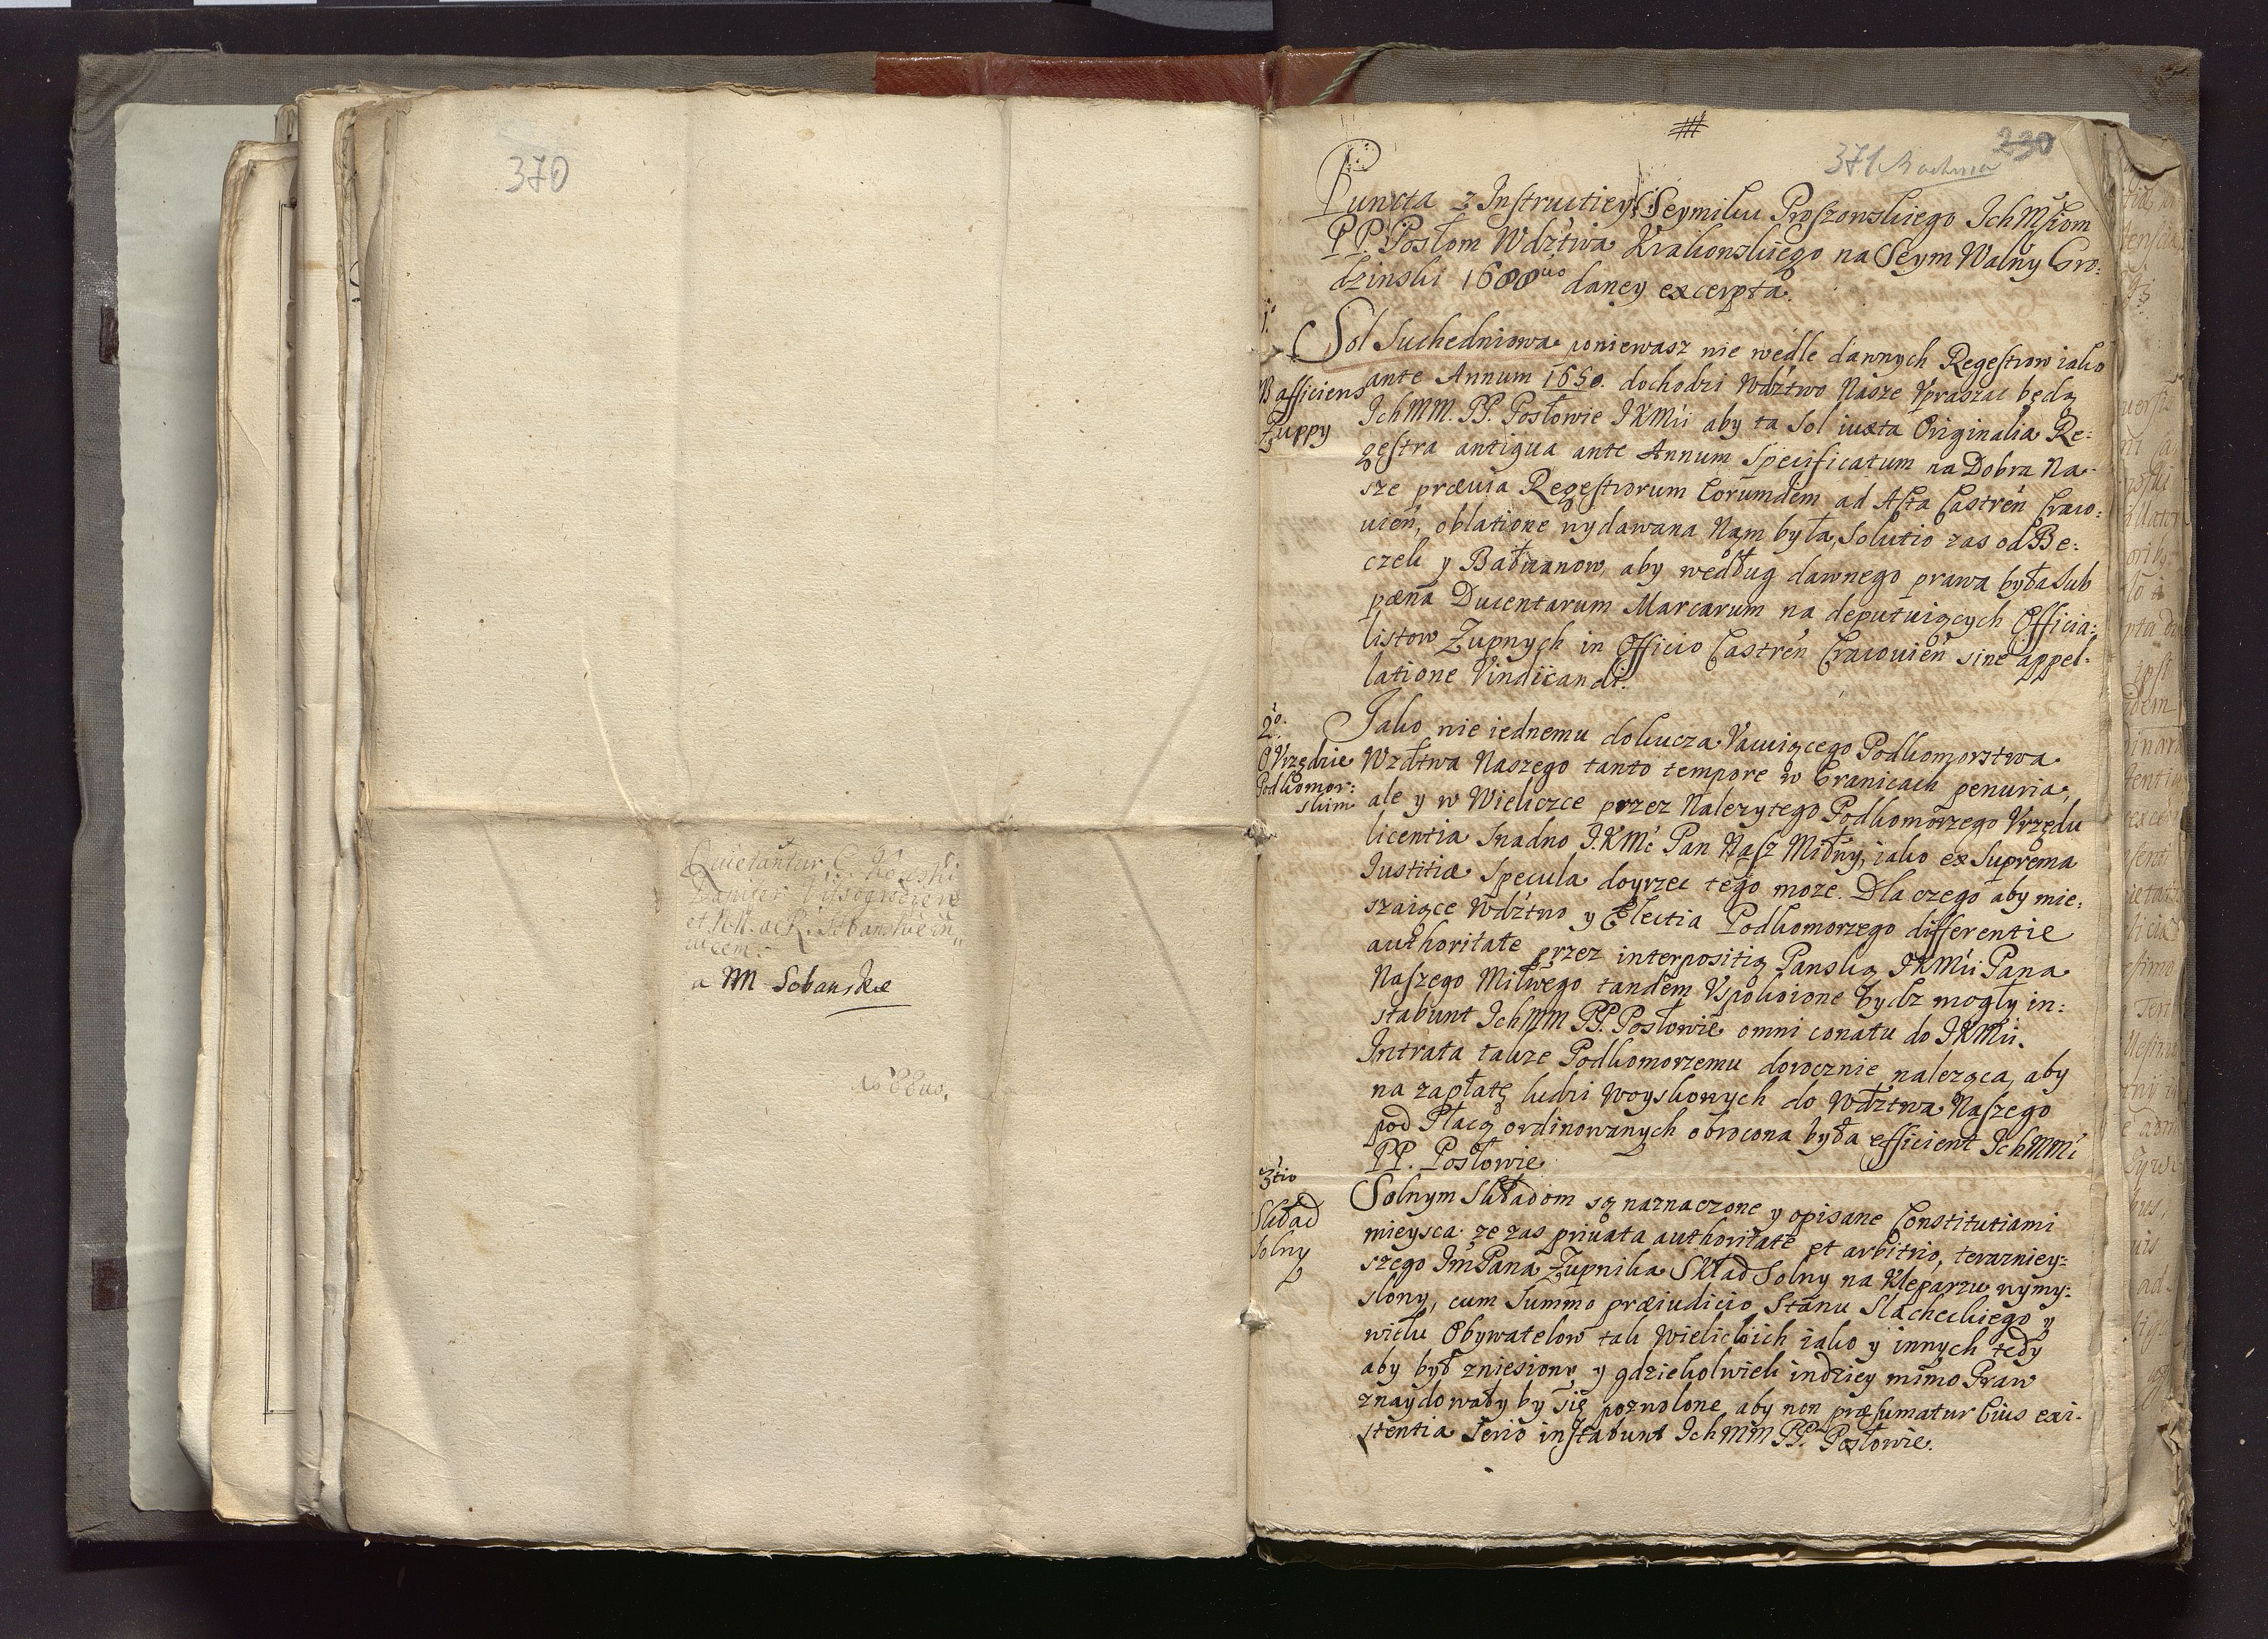 370
Quietantur
et
a M Sobanskie
371 Bochnia 230
Puncta z Instructiey Seymiku Proszowskiego Ich Mściom
PP. Posłom Wdztwa Krakowskiego na Seym Walny Gro:
dzinski 1688uo daney excerpta.
1o.
Sol Suchedniowa poniewasz nie wedle dawnych Regestrow iako
ante Annum 1650. dochodzi Wdztwo Nasze Vpraszac będą
Afficiens
Zuppy
Ich MM. PP. Posłowie IKMci aby ta Sol iuxta Originalia Re:
gestra antiqua ante Annum Specificatum na Dobra Na-
sze prævia Regestrorum Eorumdem ad Acta Castren Craco:
vien, oblatione wydawana Nam była, Solutio zas od Be:
czek y Bałwanow, aby według dawnego prawa była sub
pœna Ducentarum Marcarum na deputuiących Officia:
listow Zupnych in Officio Castren Cracovien sine appel-
latione Vindicandi.
2o.
O Vrzędzie
Podkomor:
skim
Jako nie iednemu dokucza Vacuiącego Podkomorstwa
Wdztwa Naszego tanto tempore w Granicach penuria,
ale y w Wieliczce przez Nalezytego Podkomorzego Vrzędu
licentia Snadno I.K.Mc Pan Nasz Miłwy, iako ex Suprema
Iustitiæ Specula doyrzec tego moze. Dla czego aby mie:
szaiące Wdztwo y Electia Podkomorzego differentie
authoritate przez interpositią Panską IKMci Pana
Naszego Miłwego tandem Vspokoione bydz mogły in:
stabunt Ich MM PP. Posłowie omni conatu do IKMci.
Intrata takze Podkomorzemu dorocznie naleząca, aby
na zapłatę ludzi Woyskowych do Wdztwa Naszego
pod Płacą ordinowanych obrocona była efficient Ich MMć
PP. Posłowie
3tio
Skład
Solny
Solnym Składom są naznaczone y opisane Constitutiami
mieysca: ze zas privata authoritate et arbitrio, terazniey:
szego Im Pana Zupnika Skład Solny na Kleparzu wymy:
slony, cum summo præiudicio Stanu Slacheckiego y
wielu Obywatelow tak Wielickich iako y innych tedy
aby był zniesiony, y gdziekolwiek indziey mimo Praw
znaydowały by się pozwolone, aby non præsumatur Eius exi-
stentia serio instabunt Ich MM PP. Posłowie.